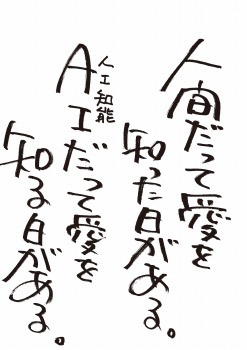 人間だって愛を
知った日がある。
人工知能
AIだって愛を
知る日がある。